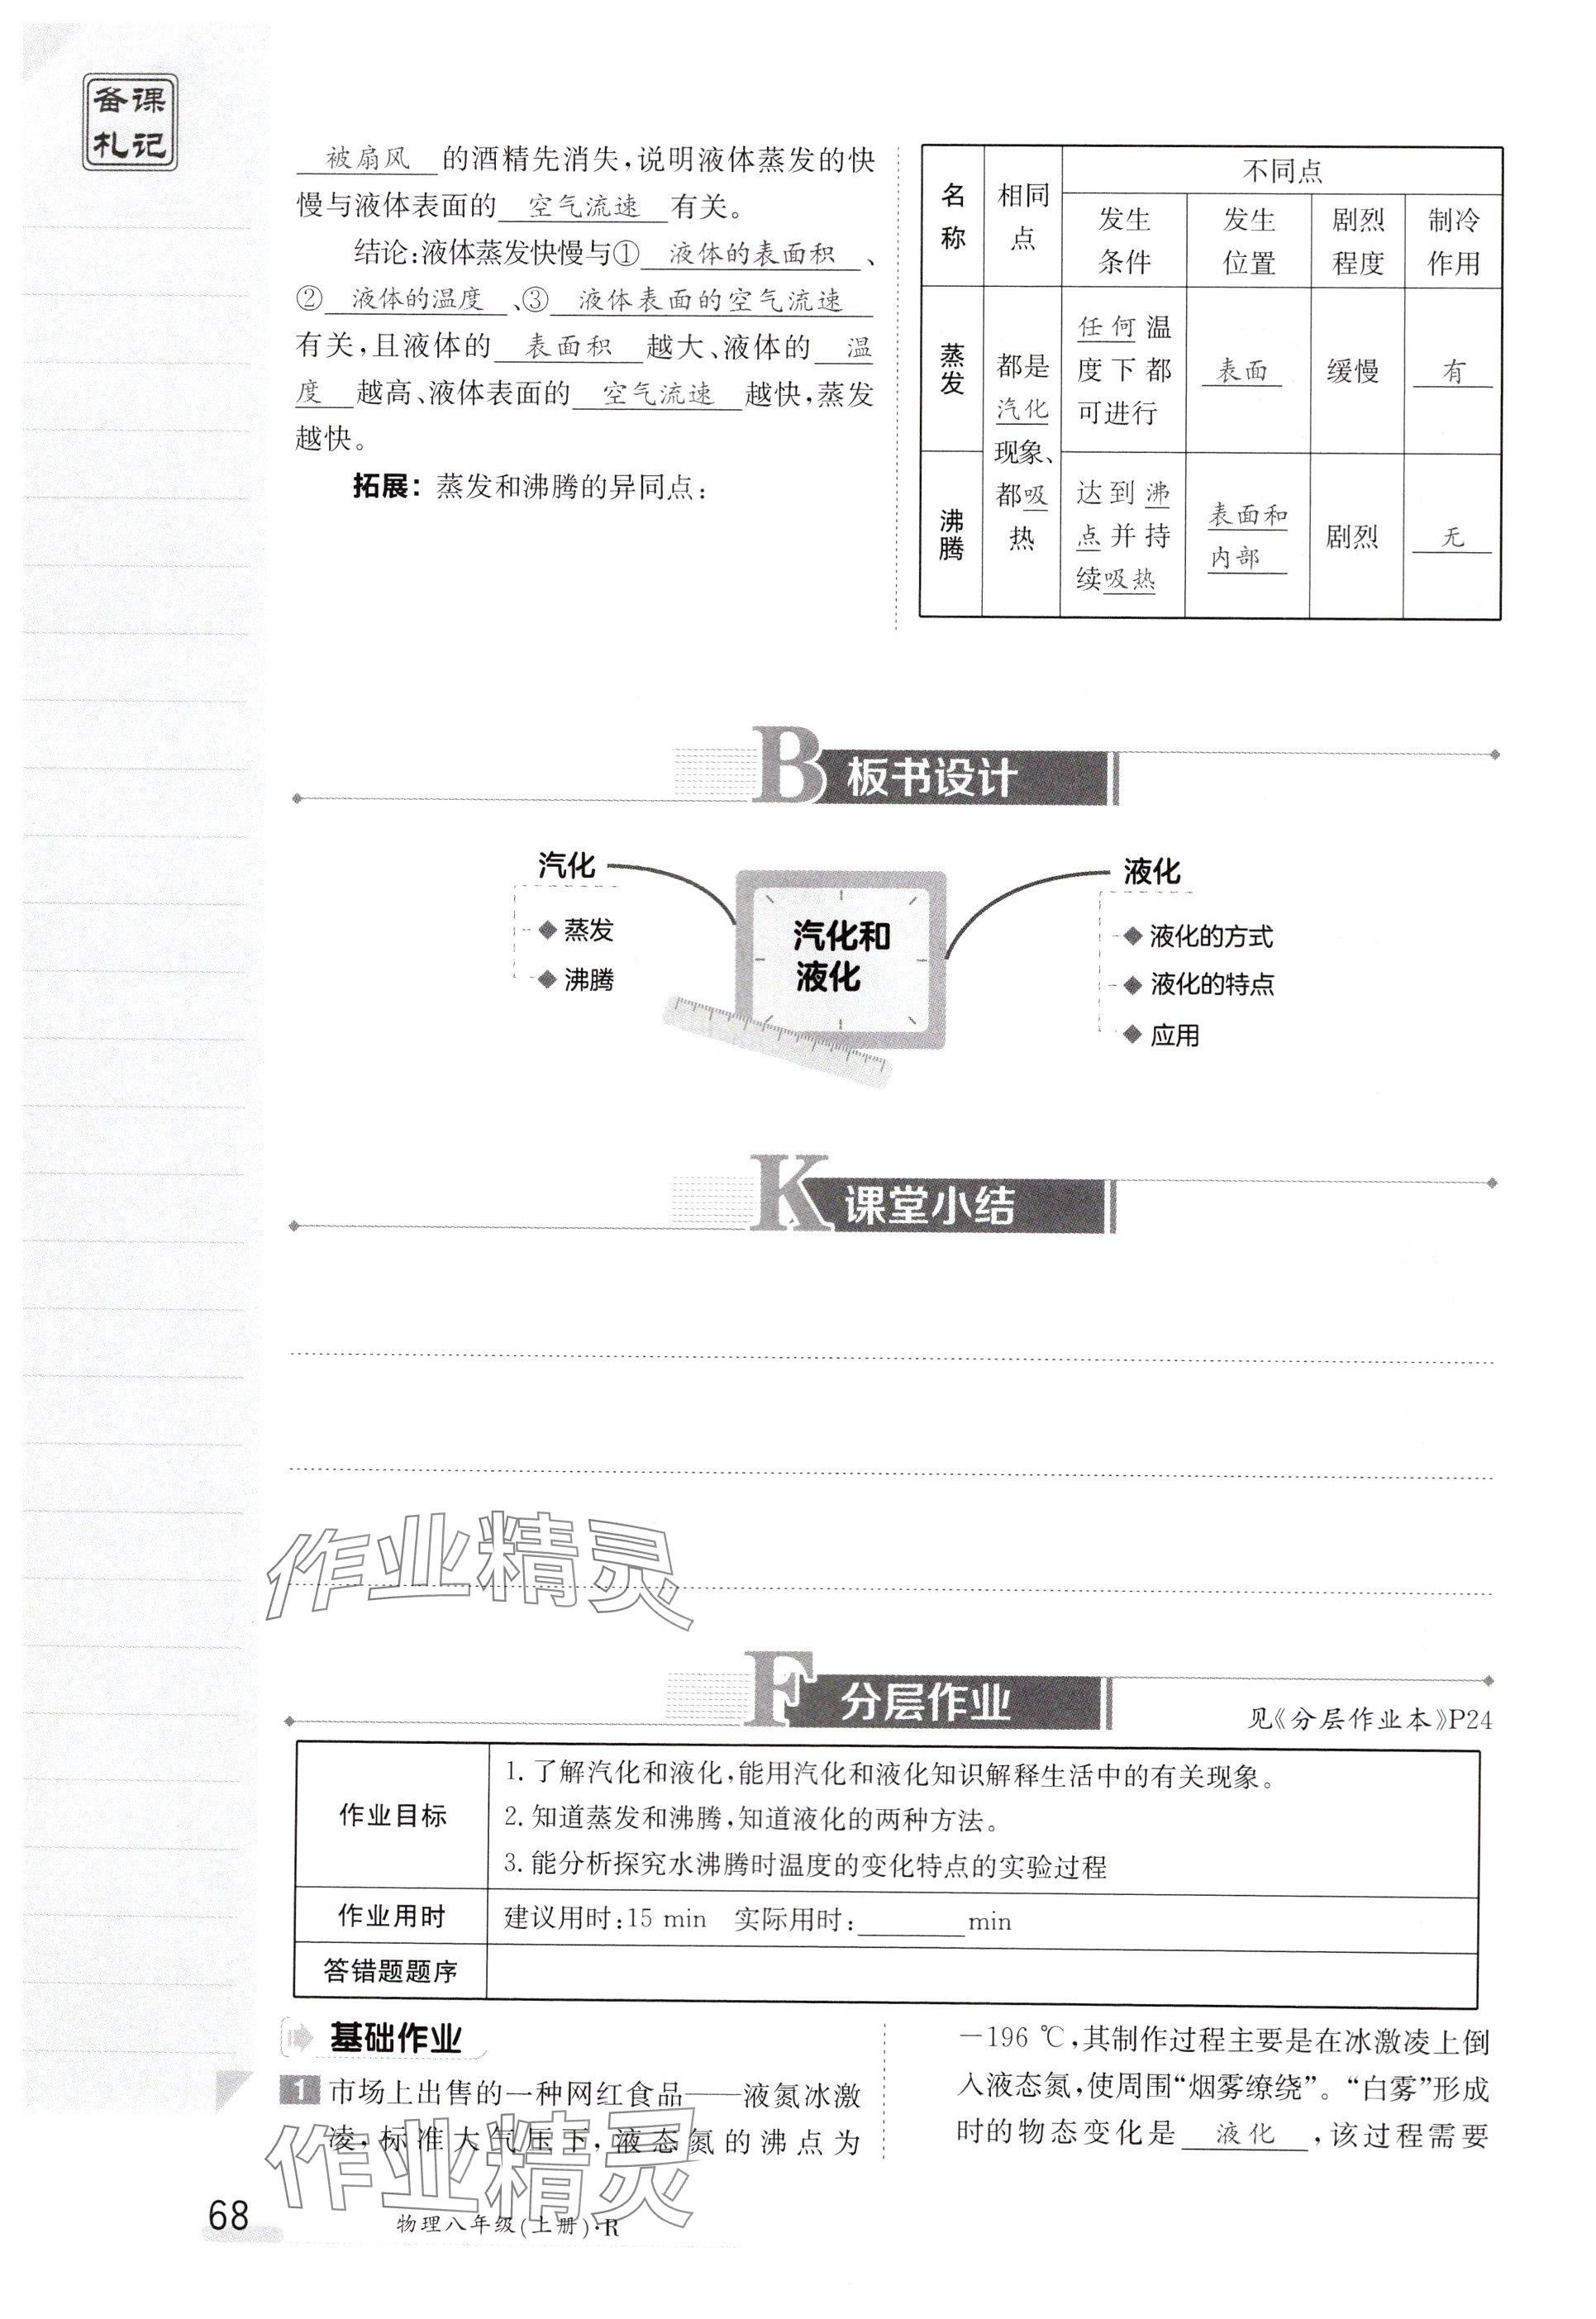 备课
札记
被扇风 的酒精先消失,说明液体蒸发的快
慢与液体表面的 空气流速 有关。
结论:液体蒸发快慢与① 液体的表面积 、
② 液体的温度 、③ 液体表面的空气流速
有关,且液体的 表面积 越大、液体的 温
度 越高、液体表面的 空气流速 越快,蒸发
越快。
拓展:蒸发和沸腾的异同点:
名称 相同点 不同点
发生条件 发生位置 剧烈程度 制冷作用
蒸发 都是汽化现象、都吸热 任何温度下都可进行 表面 缓慢 有
沸腾 达到沸点并持续吸热 表面和内部 剧烈 无
B 板书设计
汽化
蒸发
沸腾
汽化和
液化
液化
液化的方式
液化的特点
应用
K 课堂小结
作业精灵
F 分层作业
见《分层作业本》P24
作业目标
1. 了解汽化和液化,能用汽化和液化知识解释生活中的有关现象。
2. 知道蒸发和沸腾,知道液化的两种方法。
3. 能分析探究水沸腾时温度的变化特点的实验过程
作业用时 建议用时:15 min 实际用时:________min
答错题题序
基础作业
1 市场上出售的一种网红食品——液氮冰激
凌,标准大气压下,液态氮的沸点为
－196 ℃,其制作过程主要是在冰激凌上倒
入液态氮,使周围“烟雾缭绕”。“白雾”形成
时的物态变化是 液化 ,该过程需要
作业精灵
68
物理八年级(上册)·R